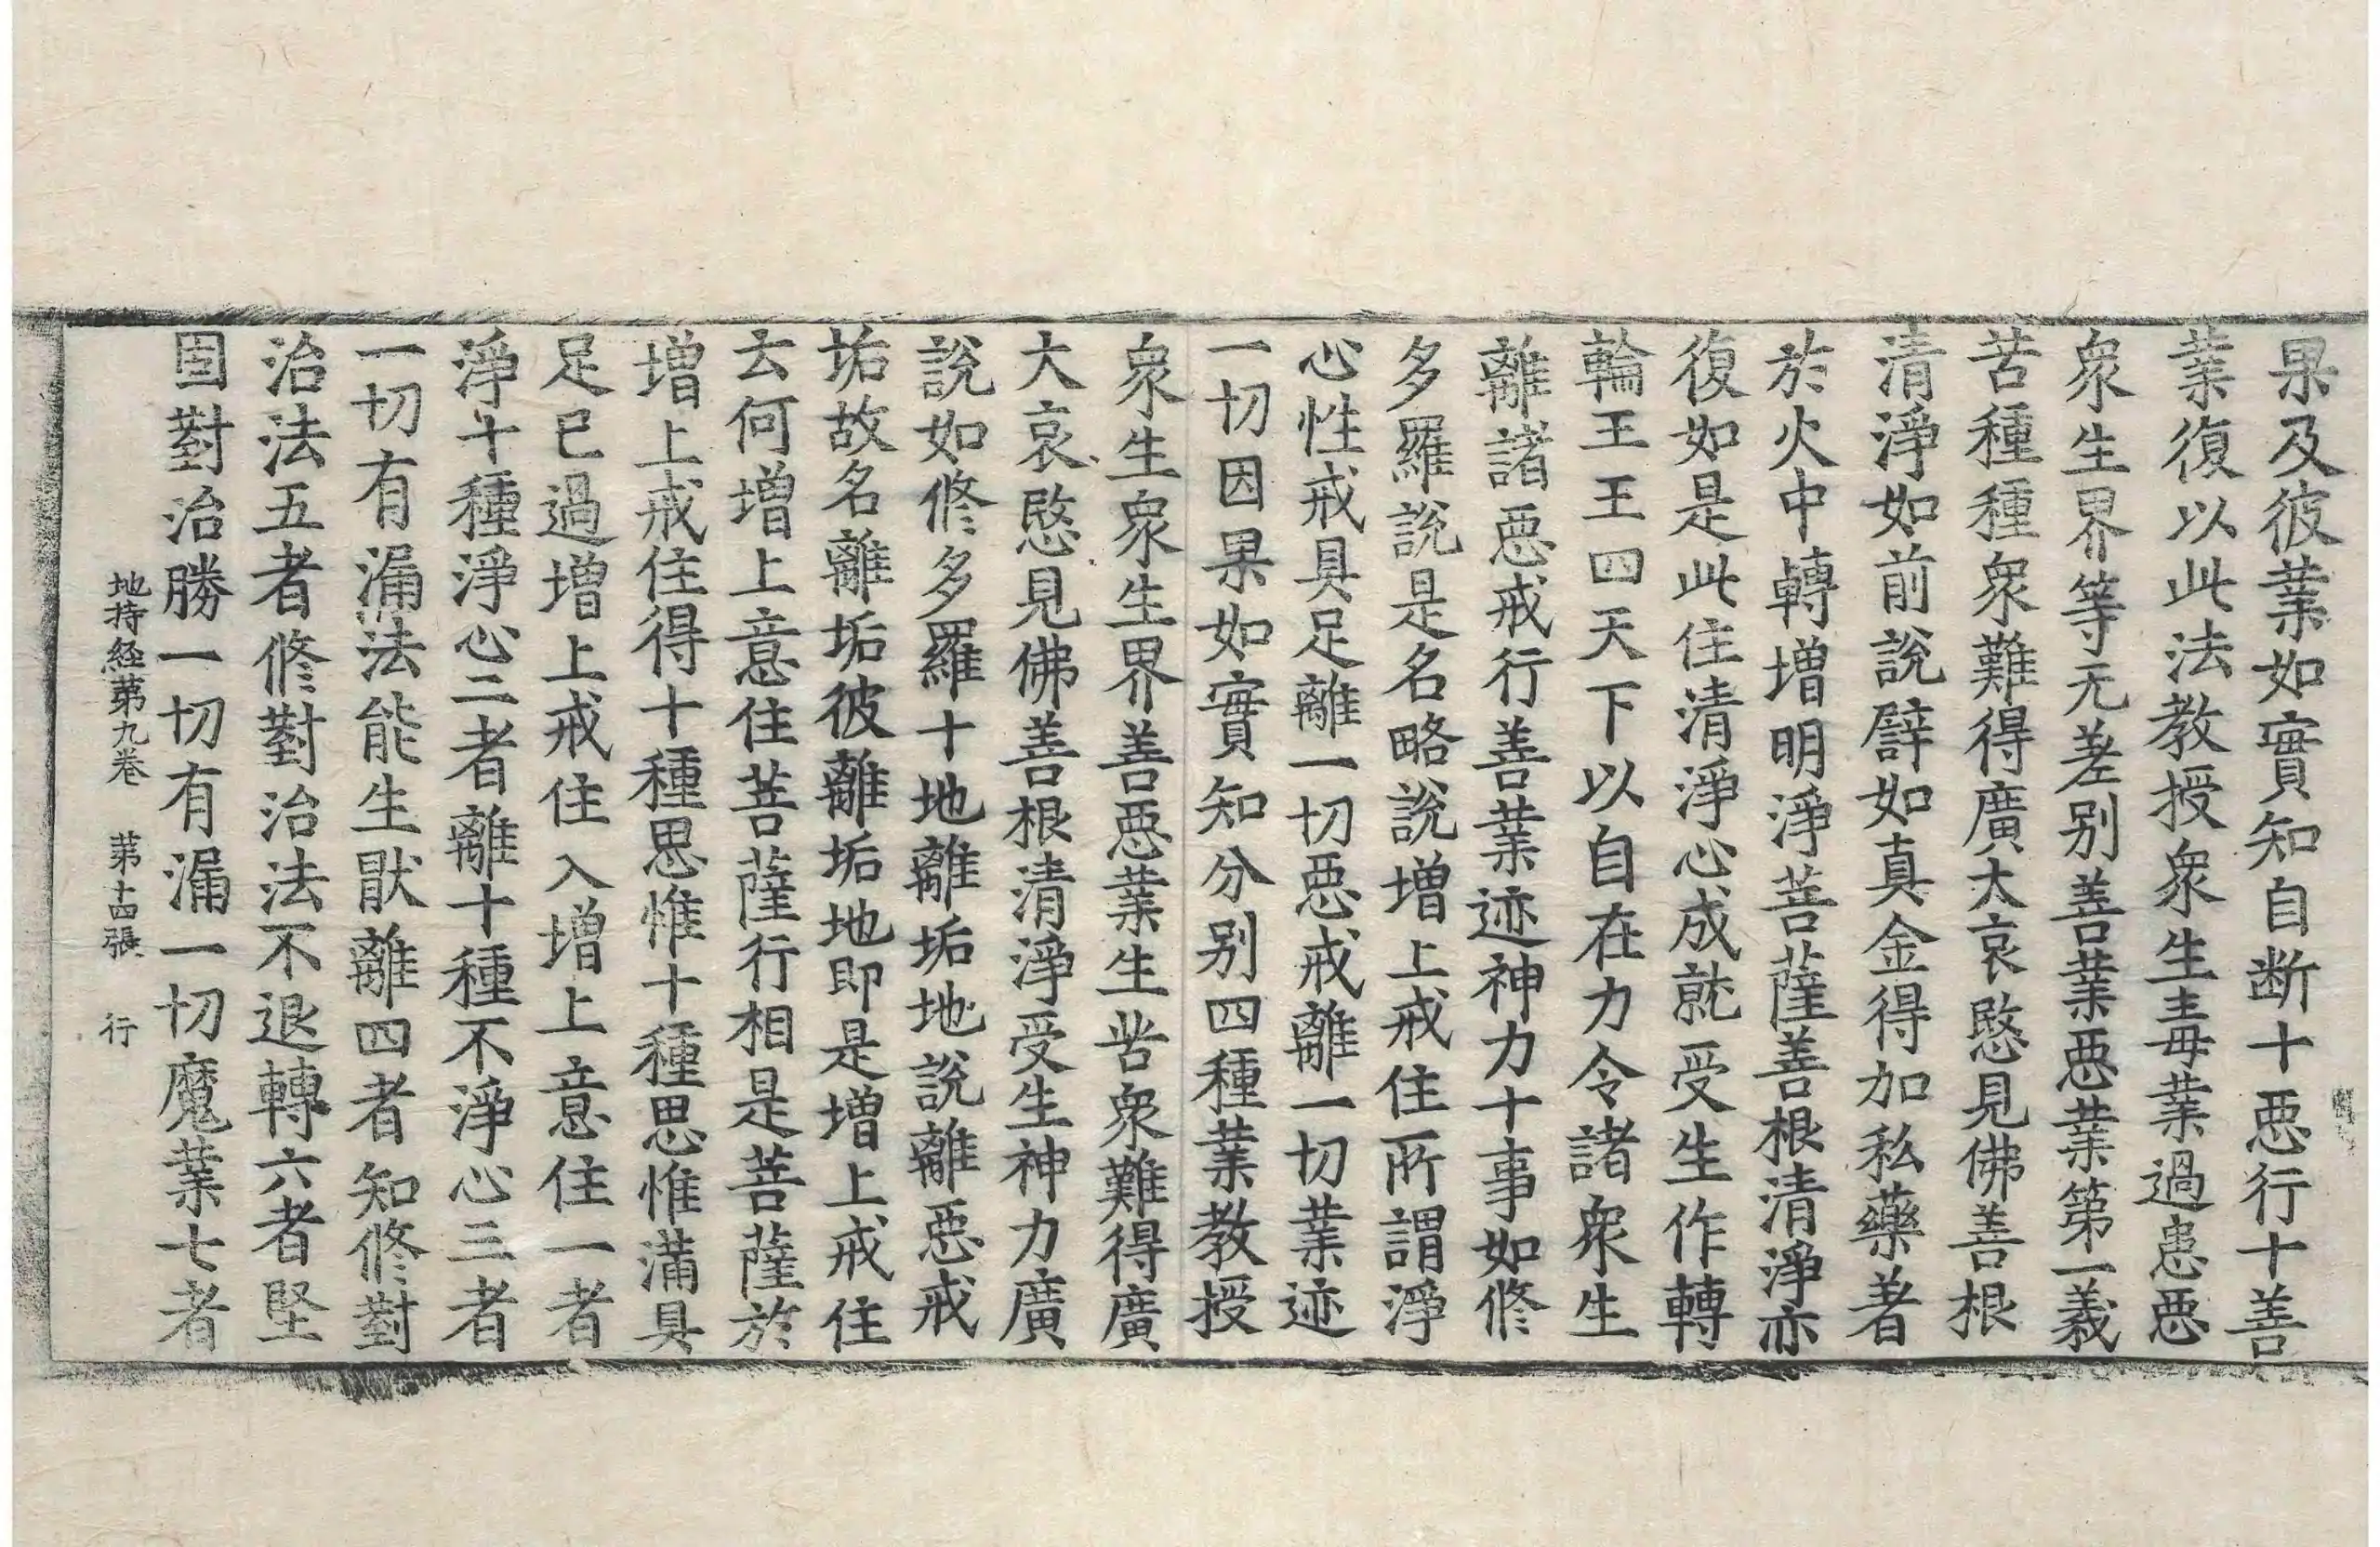 果及彼業如實知自断十惡行十善
業復以此法教授衆生毒業過患惡
衆生界等无差別善業惡業第一義
苦種種衆難得廣大哀愍見佛善根
清淨如前說譬如真金得加私藥著
於火中轉增明淨菩薩善根清淨亦
復如是此住清淨心成就受生作轉
輪王王四天下以自在力令諸衆生
離諸惡戒行善業迹神力十事如修
多羅說是名略說增上戒住所謂淨
心性戒具足離一切惡戒離一切業迹
一切因果如實知分別四種業教授
衆生衆生界善惡業生苦衆難得廣
大哀愍見佛善根清淨受生神力廣
說如修多羅十地離垢地說離惡戒
垢故名離垢彼離垢地即是增上戒住
云何增上意住菩薩行相是菩薩於
增上戒住得十種思惟十種思惟滿具
足已過增上戒住入增上意住一者
淨十種淨心二者離十種不淨心三者
一切有漏法能生猒離四者知修對
治法五者修對治法不退轉六者堅
固對治勝一切有漏一切魔業七者
地持経第九卷 第十四張 行